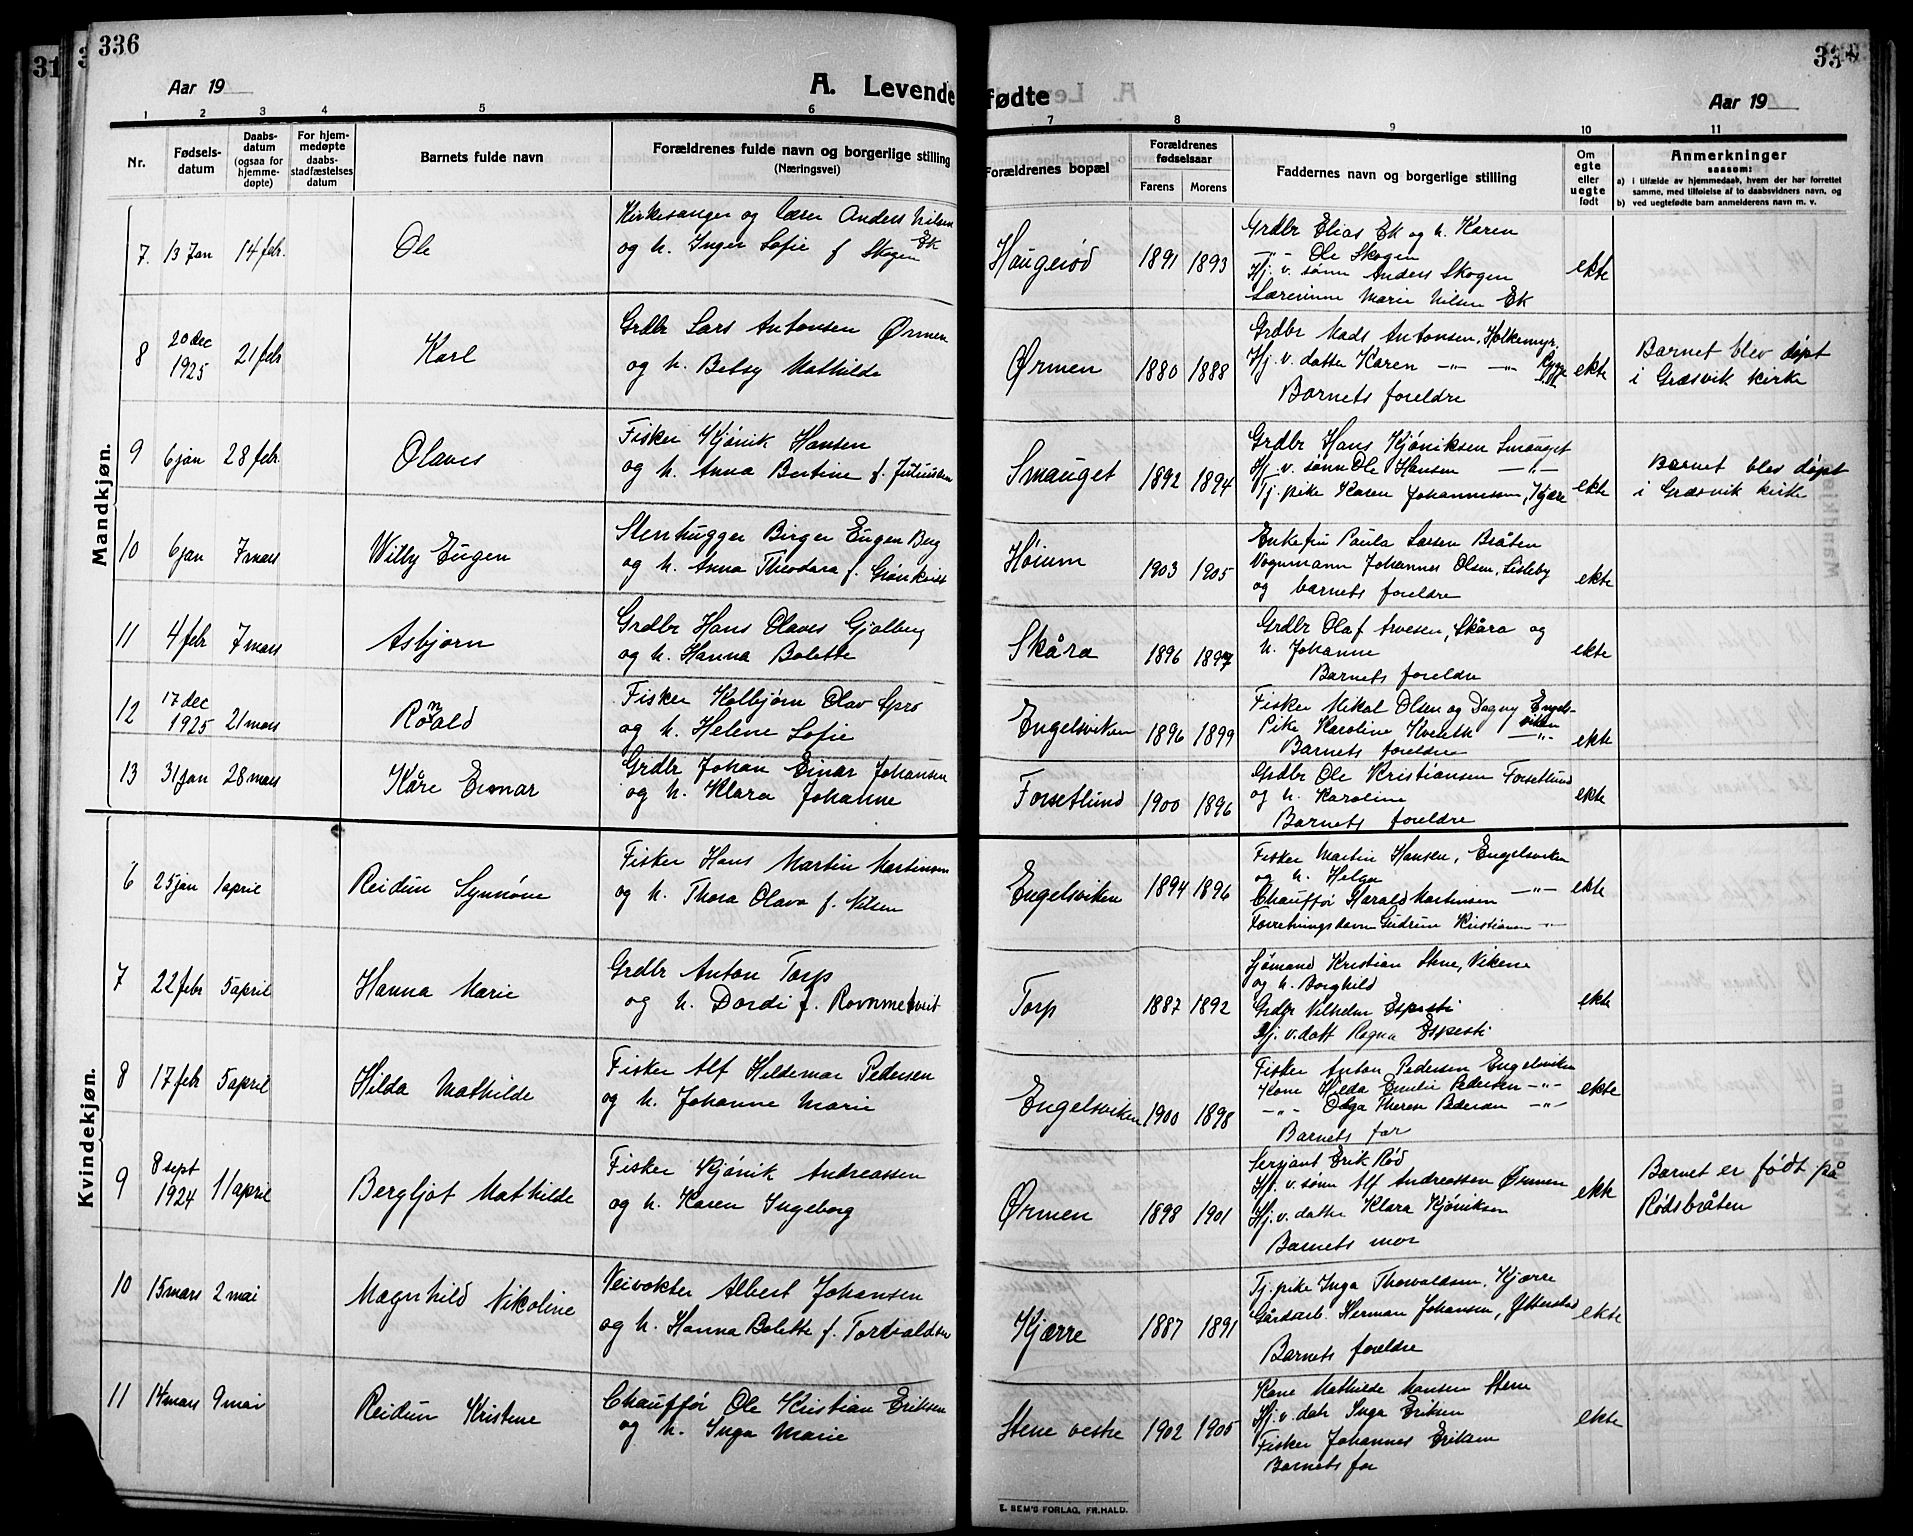 336
Aar 19
A. Levendefødte
Aar 19
1 2 3 4 5 6 7 8 9 10 11
Nr.
Fødsels-
datum
Daabs-
datum
(ogsaa for
hjemme-
døpte)
For hjem-
medøpte
daabs-
stadfæstelses
datum
Barnets fulde navn
Forældrenes fulde navn og borgerlige stilling
(Næringsvei)
Forældrenes bopæl
Forældrenes
fødselsaar
Farens Morens
Faddernes navn og borgerlige stilling
Om
egte
eller
uegte
født
Anmerkninger
saasom:
a) i tilfælde av hjemmedaab, hvem der har forrettet
samme, med tilføielse af to daabsvidners navn, og
b) ved uegtefødte barn anmelderens navn m. v.
Mandkjøn.
7. 13 Jan 14 febr.
Ole
Kirkesanger og lærer Anders Nilsen Ek
og h. Inger Sofie f. Skogen
Haugerød 1891 1893
Grdbr Elias Ek og h. Karen
-"- Ole Skogen
Hj. v. sønn Anders Skogen
Lærerinne Marie Nilsen Ek
ekte
8 20 dec 1925 21 febr
Karl
Grdbr Lars Antonsen Ørmen
og h. Betsy Mathilde
Ørmen 1880 1888
Grdbr Mads Antonsen, Holkemyr,
Hj. v. datter Karen -"- -"- Rygge
Barnets foreldre
ekte
Barnet blev døpt
i Græsvik kirke
9 6 jan 28 febr.
Olaves
Fisker Kjønik Hansen
og h. Anna Bertine f. Juliussen
Smauget 1892 1894
Grdbr Hans Kjøniksen Smauget
Hj. v. sønn Ole Hansen -"-
Tj. pike Karen Johannessen, Kjære
ekte
Barnet blev døpt
i Græsvik kirke
10 6 jan 7 mars
Willy Eugen
Stenhugger Birger Eugen Berg
og h. Anna Theodora f.
Høium 1903 1905
Enkefru Paula Larsen Bråten
Vognmann Johannes Olsen, Lisleby
og barnets foreldre
ekte
11 4 febr 7 mars
Asbjørn
Grdbr Hans Olaves Gjølberg
og h. Hanna Bolette
Skåra 1896 1897
Grdbr Olaf Arvesen, Skåra og
h. Johanne
Barnets foreldre
ekte
12 17 dec 1925 21 mars
Ronald
Fisker Kolbjørn Olav Spro
og h. Helene Sofie
Engelsviken 1896 1899
Fisker Mikal Olsen og Dagny Engels-
viken
Pike Karoline Kventh -"-
Barnets foreldre
ekte
13 31 jan 28 mars
Kåre Eimar
Grdbr Johan Einar Johansen
og h. Klara Johanne
Forsetlund 1900 1896
Grdbr Ole Kristiansen Forsetlund
og h. Karoline
Barnets foreldre
ekte
Kvindekjøn.
6 25 jan 1 april
Reidun Synnøve
Fisker Hans Martin Martinsen
og h. Thora Olava f. Nilsen
Engelsviken 1894 1896
Fisker Martin Hansen, Engelsviken
og h. Helga
Chauffør Harald Martinsen -"-
Forretningsdame Gudrun Kristiansen -"-
ekte
7 22 febr 5 april
Hanna Marie
Grdbr Anton Torp
og h. Dordi f.
Torp 1887 1892
Sjømand Kristian Stene, Vikene
og h. Borghild
Grdbr Vilhelm Espesti
Hj. v. datt Ragna Espesti
ekte
8 17 febr 5 april
Hilda Mathilde
Fisker Alf Hildemar Pedersen
og h. Johanne Marie
Engelsviken 1900 1898
Fisker Anton Pedersen Engelsviken
Kone Hilda Emilie Pedersen -"-
-"- Olga Therese Pedersen -"-
Barnets far
ekte
9 8 sept 1924 11 april
Bergljot Mathilde
Fisker Kjønik Andreassen
og h. Karen Ingeborg
Ørmen 1898 1901
Sersjant Erik Rød
Hj. v. sønn Alf Andreassen Ørmen
Hj. v. datter Klara Kjøniksen
Barnets mor
ekte
Barnet er født på
Rødsbråten
10 15 mars 2 mai
Magnhild Nikoline
Veivokter Albert Johansen
og h. Hanna Bolette f. Torvaldsen
Kjærre 1887 1891
Tj. pike Inga Thorvaldsen, Kjærre
Gårdsarb. Herman Johansen, Ytterstad
Barnets foreldre
ekte
11 14 mars 9 mai
Reidun Kristene
Chauffør Ole Kristian Eriksen
og h. Inga Marie
Stene vestre 1902 1905
Kone Mathilde Hansen Stene
Hj. v. datr Inga Eriksen
Fisker Johannes Eriksen
Barnets far
ekte
E. SEM'S FORLAG, FR.HALD.